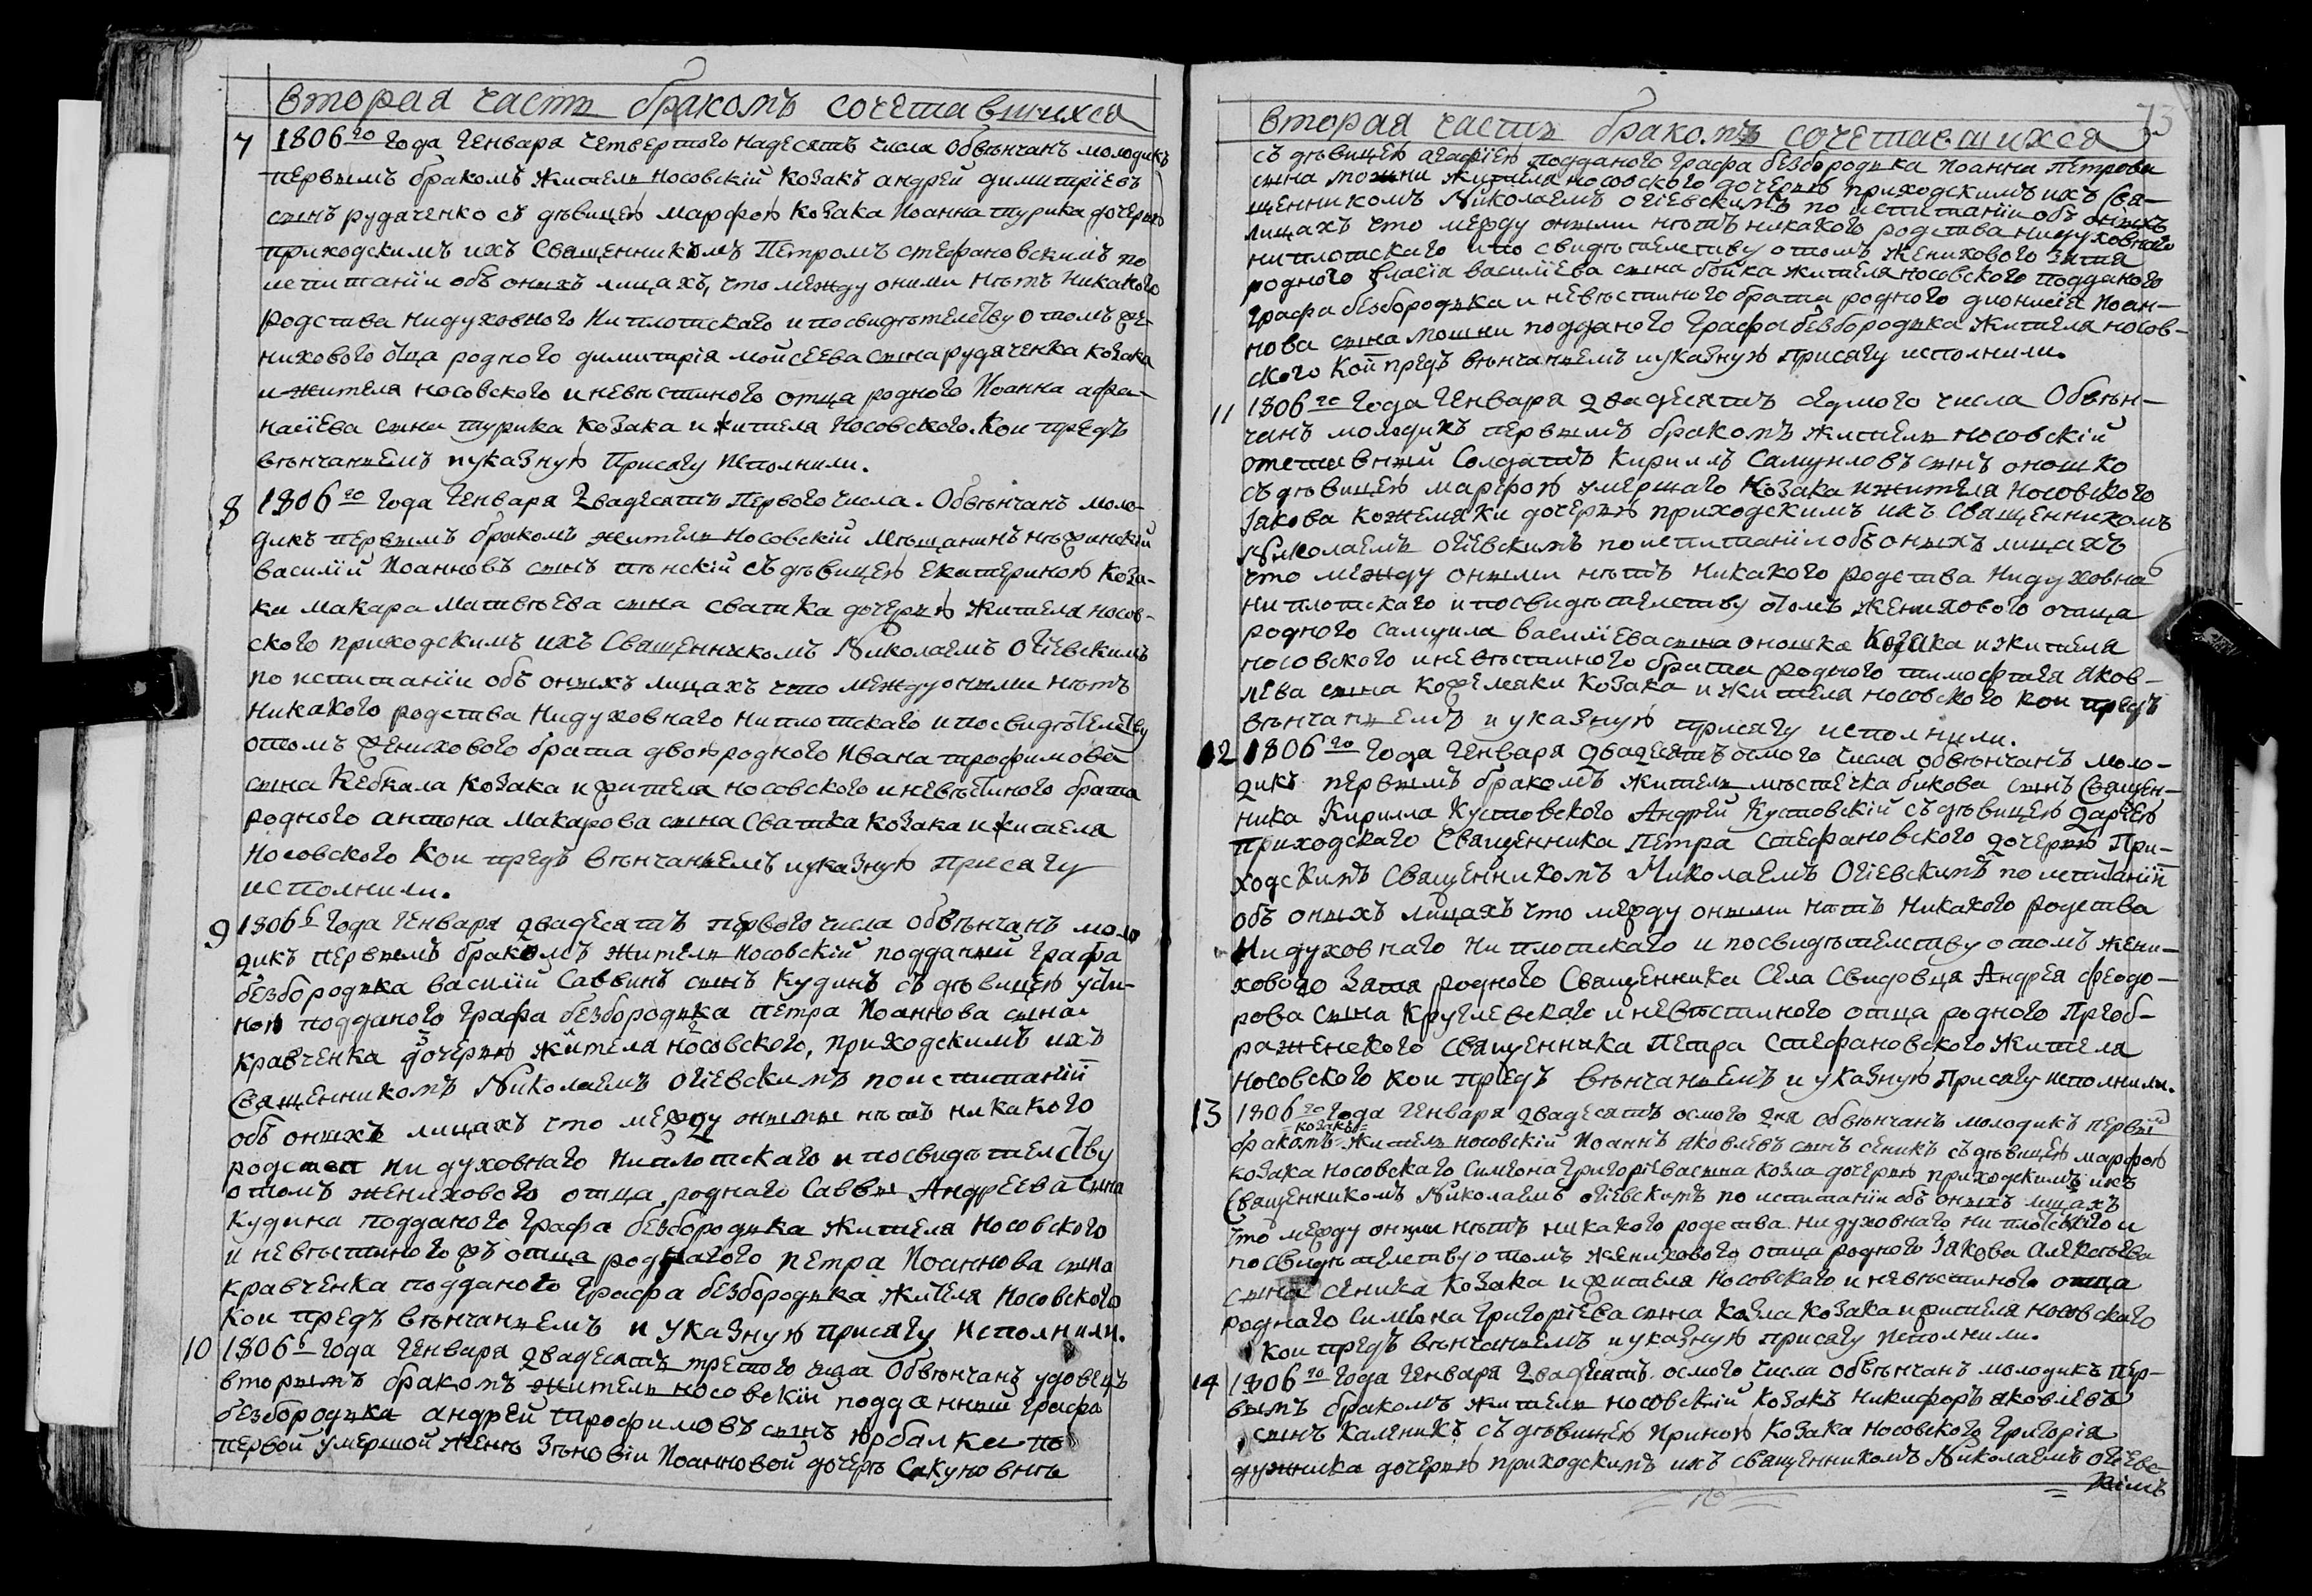 вторая часть бракомъ сочетавшихся
7 1806го года Генваря четвертого надесять числа обвѣнчанъ молодикъ
первымъ бракомъ житель Носовскій козакъ андрей димитріевъ
сынъ рудяченко съ дѣвицею марфою козака Иоанна турика дочерью
приходскимъ ихъ Священникомъ Петромъ стефановскимъ по
испитаніи объ оныхъ лицахъ, что между оними нѣтъ никакого
родства нидуховного ни плотскаго и посвидѣтелству о томъ же-
нихового отца родного димитрія мойсеева сына рудяченка козака
и жителя носовского и невѣстиного отца родного Иоанна афа-
насіева сына турика козака и жителя Носовского. Кои предъ
вѣнчаньемъ и указную Присягу исполнили.
8 1806го года Генваря двадесять Первого числа. Обвѣнчанъ моло-
дикъ первымъ бракомъ житель Носовскій мѣщанинъ нѣжинскій
василій Иоанновъ сынъ пѣнскій съ дѣвицею Екатериною коза-
ка макара матвѣева сына сватка дочерью жителя носов-
ского приходскимъ ихъ Священникомъ Николаемъ Огіевскимъ
по испитаніи объ оныхъ лицахъ что между оними нѣтъ
никакого родства нидуховнаго ниплотскаго и посвидѣтелству
отомъ женихового брата двоюродного Ивана трофимова
сына Кебкала козака и жителя носовского и невѣстиного брата
родного антона макарова сына Сватка козака и жителя
Носовского кои предъ вѣнчаньемъ и указную присягу
исполнили.
9 1806г года Генваря двадесять первого числа обвѣнчанъ моло
дикъ первымъ бракомъ житель Носовскій подданый Графа
безбородька василій Саввинъ сынъ кудинъ съ дѣвицею усти-
ною подданого Графа безбородька петра Иоаннова сына
кравченка дочерью жителя носовского, приходскимъ ихъ
Священникомъ Николаемъ Огіевскимъ по испитаніи
объ оныхъ лицахъ что между оными нѣтъ никакого
родства ни духовнаго ниплотскаго и посвидѣтелству
о томъ женихового отца роднаго Саввы Андреева сына
кудина подданого Графа безбородька жителя Носовского
и невѣстиного жъ отца родного петра Иоаннова сына
кравченка подданого Графа безбородька жителя Носовского
кои предъ вѣнчаньемъ и указную присягу исполнили.
10 1806г года Генваря двадесять третого числа обвѣнчанъ удовецъ
вторымъ бракомъ житель носовскій подданный Графа
безбородька андрей трофимовъ сынъ юрбалка по
первой умершой женѣ Зѣновіи Иоанновой дочерѣ Сакуновнѣ
73
вторая часть бракомъ сочетавшихся
съ дѣвицею агафіею подданого Графа безбородька Иоанна петрова
сына мошни жителя носовского дочерью приходскимъ ихъ Свя-
щенникомъ Николаемъ Огіевскимъ по испитаніи объ оныхъ
лицахъ что между оними нѣтъ никакого родства нидуховного
ниплотскаго и по свидѣтелству отомъ женихового зятя
родного власія василіева сына бойка жителя носовского подданого
Графа безбородька и невѣстиного брата родного дионисія Иоан-
нова сына мошни подданого Графа безбородька жителя носов-
ского Кои предъ вѣнчаньемъ и указную присягу исполнили.
11 1806го года Генваря двадесять седмого числа Обвѣн-
чанъ молодикъ первымъ бракомъ житель носовскій
отставный Солдатъ кириллъ Самуиловъ сынъ оношко
съ дѣвицею марфою умершаго козака и жителя носовского
Іакова кожемяки дочерью приходскимъ ихъ Священникомъ
Николаемъ Огіевскимъ по испитаніи объ оныхъ лицахъ
что между оными нѣтъ никакого родства нидуховнаг
ни плотскаго и посвидѣтелству отомъ женихового отца
родного самуила василіева сына оношка козака и жителя
носовского и невѣстиного брата родного тимофтея яков-
лева сына кожемяки козака и жителя носовского кои предъ
вѣнчаньемъ и указную присягу исполнили.
12 1806го года Генваря двадесять осмого числа обвѣнчанъ моло-
дикъ первымъ бракомъ житель мѣстечка бикова сынъ Священ-
ника Кирилла Кустовского Андрей Кустовскій съ дѣвицею дарією
приходскаго Священника Петра Стефановского дочерью При-
ходскимъ Священникомъ Николаемъ Огіевскимъ по испитаніи
объ оныхъ лицахъ что между оными нѣтъ никакого родства
Ни духовнаго ни плотскаго и посвидѣтелству отомъ жени-
хового зятя родного Священника Села Свидовця Андрея феодо-
рова сына Круглевскаго и невѣстиного отца родного Преоб-
раженского священника Петра Стефановского жителя
Носовского кои предъ вѣнчаньемъ и указную присягу исполнили.
13 1806го года Генваря двадесять осмого дня обвѣнчанъ молодикъ первый
козакъ
бракомъ житель носовскій Иоаннъ яковлевъ сынъ сеникъ съ дѣвицею марфою
козака носовскаго Симеона Григоріева сына козла дочерью приходскимъ ихъ
Священникомъ Николаемъ Огіевскимъ по испитаніи объ оныхъ лицахъ
что между оными нѣтъ никакого родства ни духовнаго ни плотскаго и
по свидѣтелству отомъ женихового отца родного Іакова алексѣева
сына сеника козака и жителя Носовского и невѣстиного отца
роднаго Симеона Григоріева сына козла козака и жителя носовскаго
кои предъ вѣнчаньемъ и указную присягу исполнили.
14 1806го года Генваря двадесять осмого числа обвѣнчанъ молодикъ пер-
вымъ бракомъ житель носовскій козакъ никифоръ яковлевъ
сынъ каленикъ съ дѣвицею Ириною козака носовского Григорія
дужника дочерью приходскимъ ихъ священникомъ Николаемъ Огіевс-
кимъ